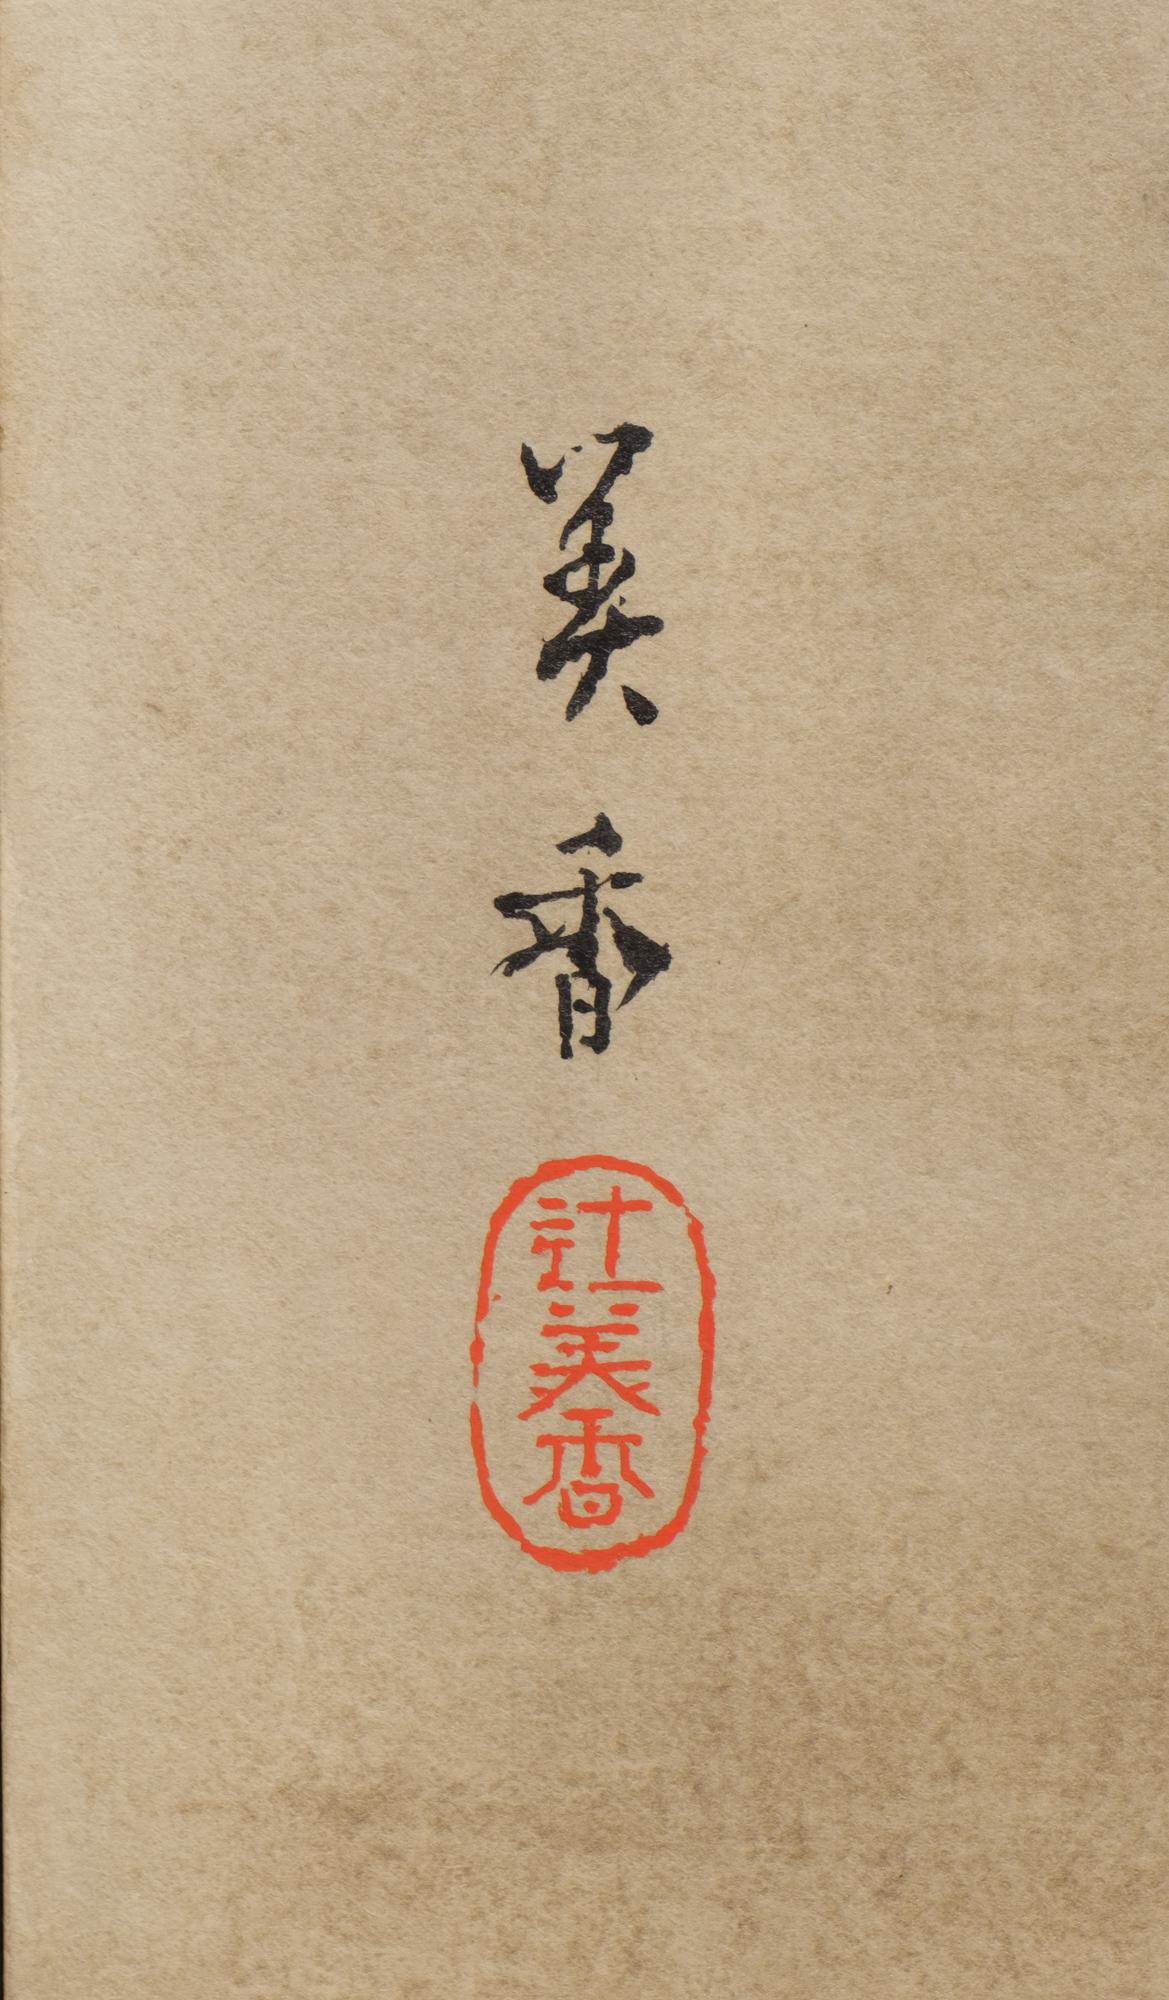 美香
辻美香